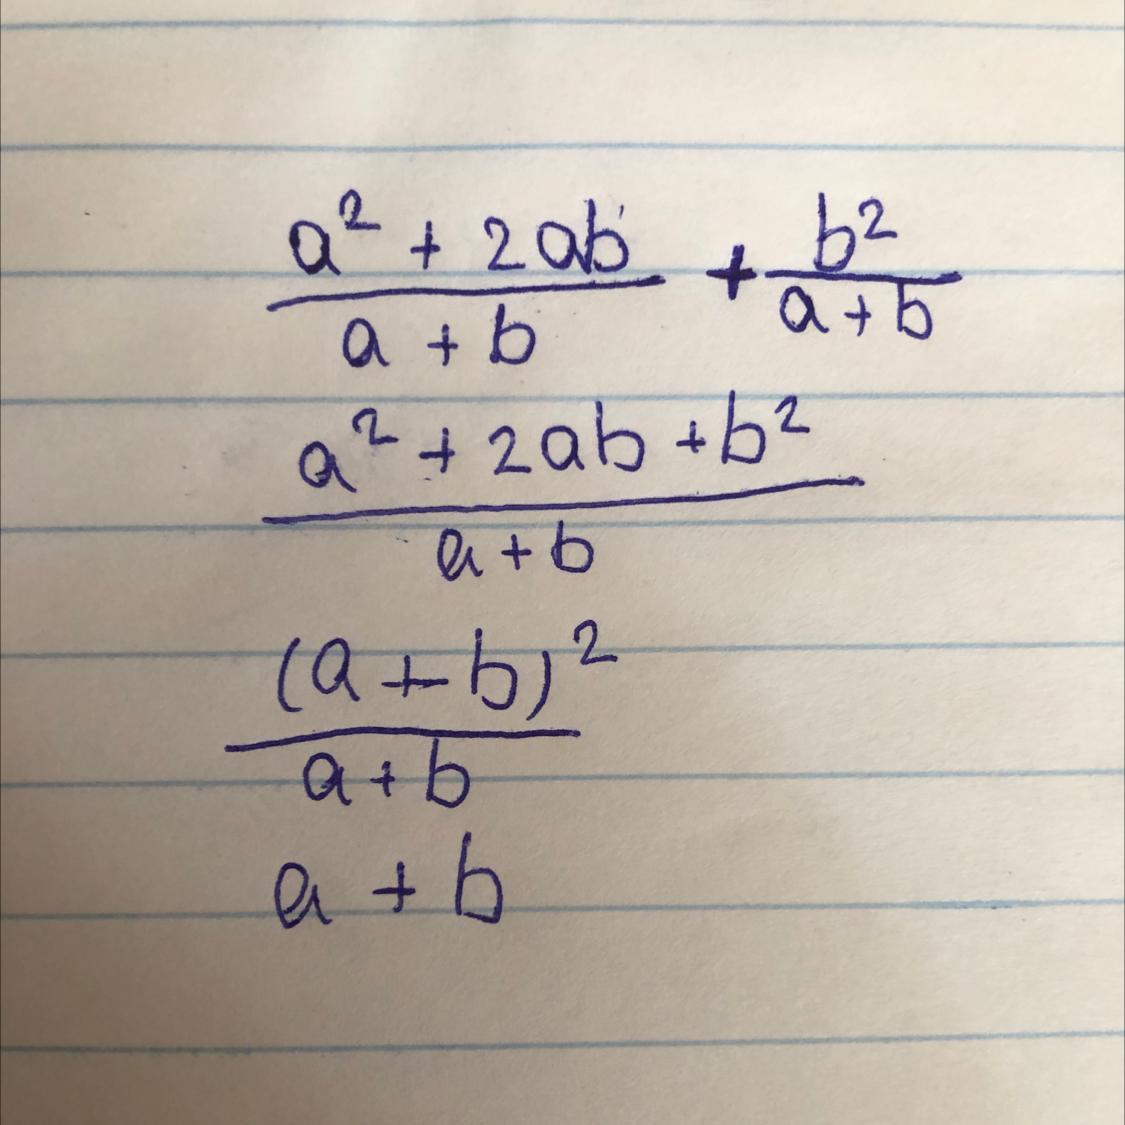 a² + 2ab / a + b + b² / a + b
a² + 2ab + b² / a + b
(a + b)² / a + b
a + b